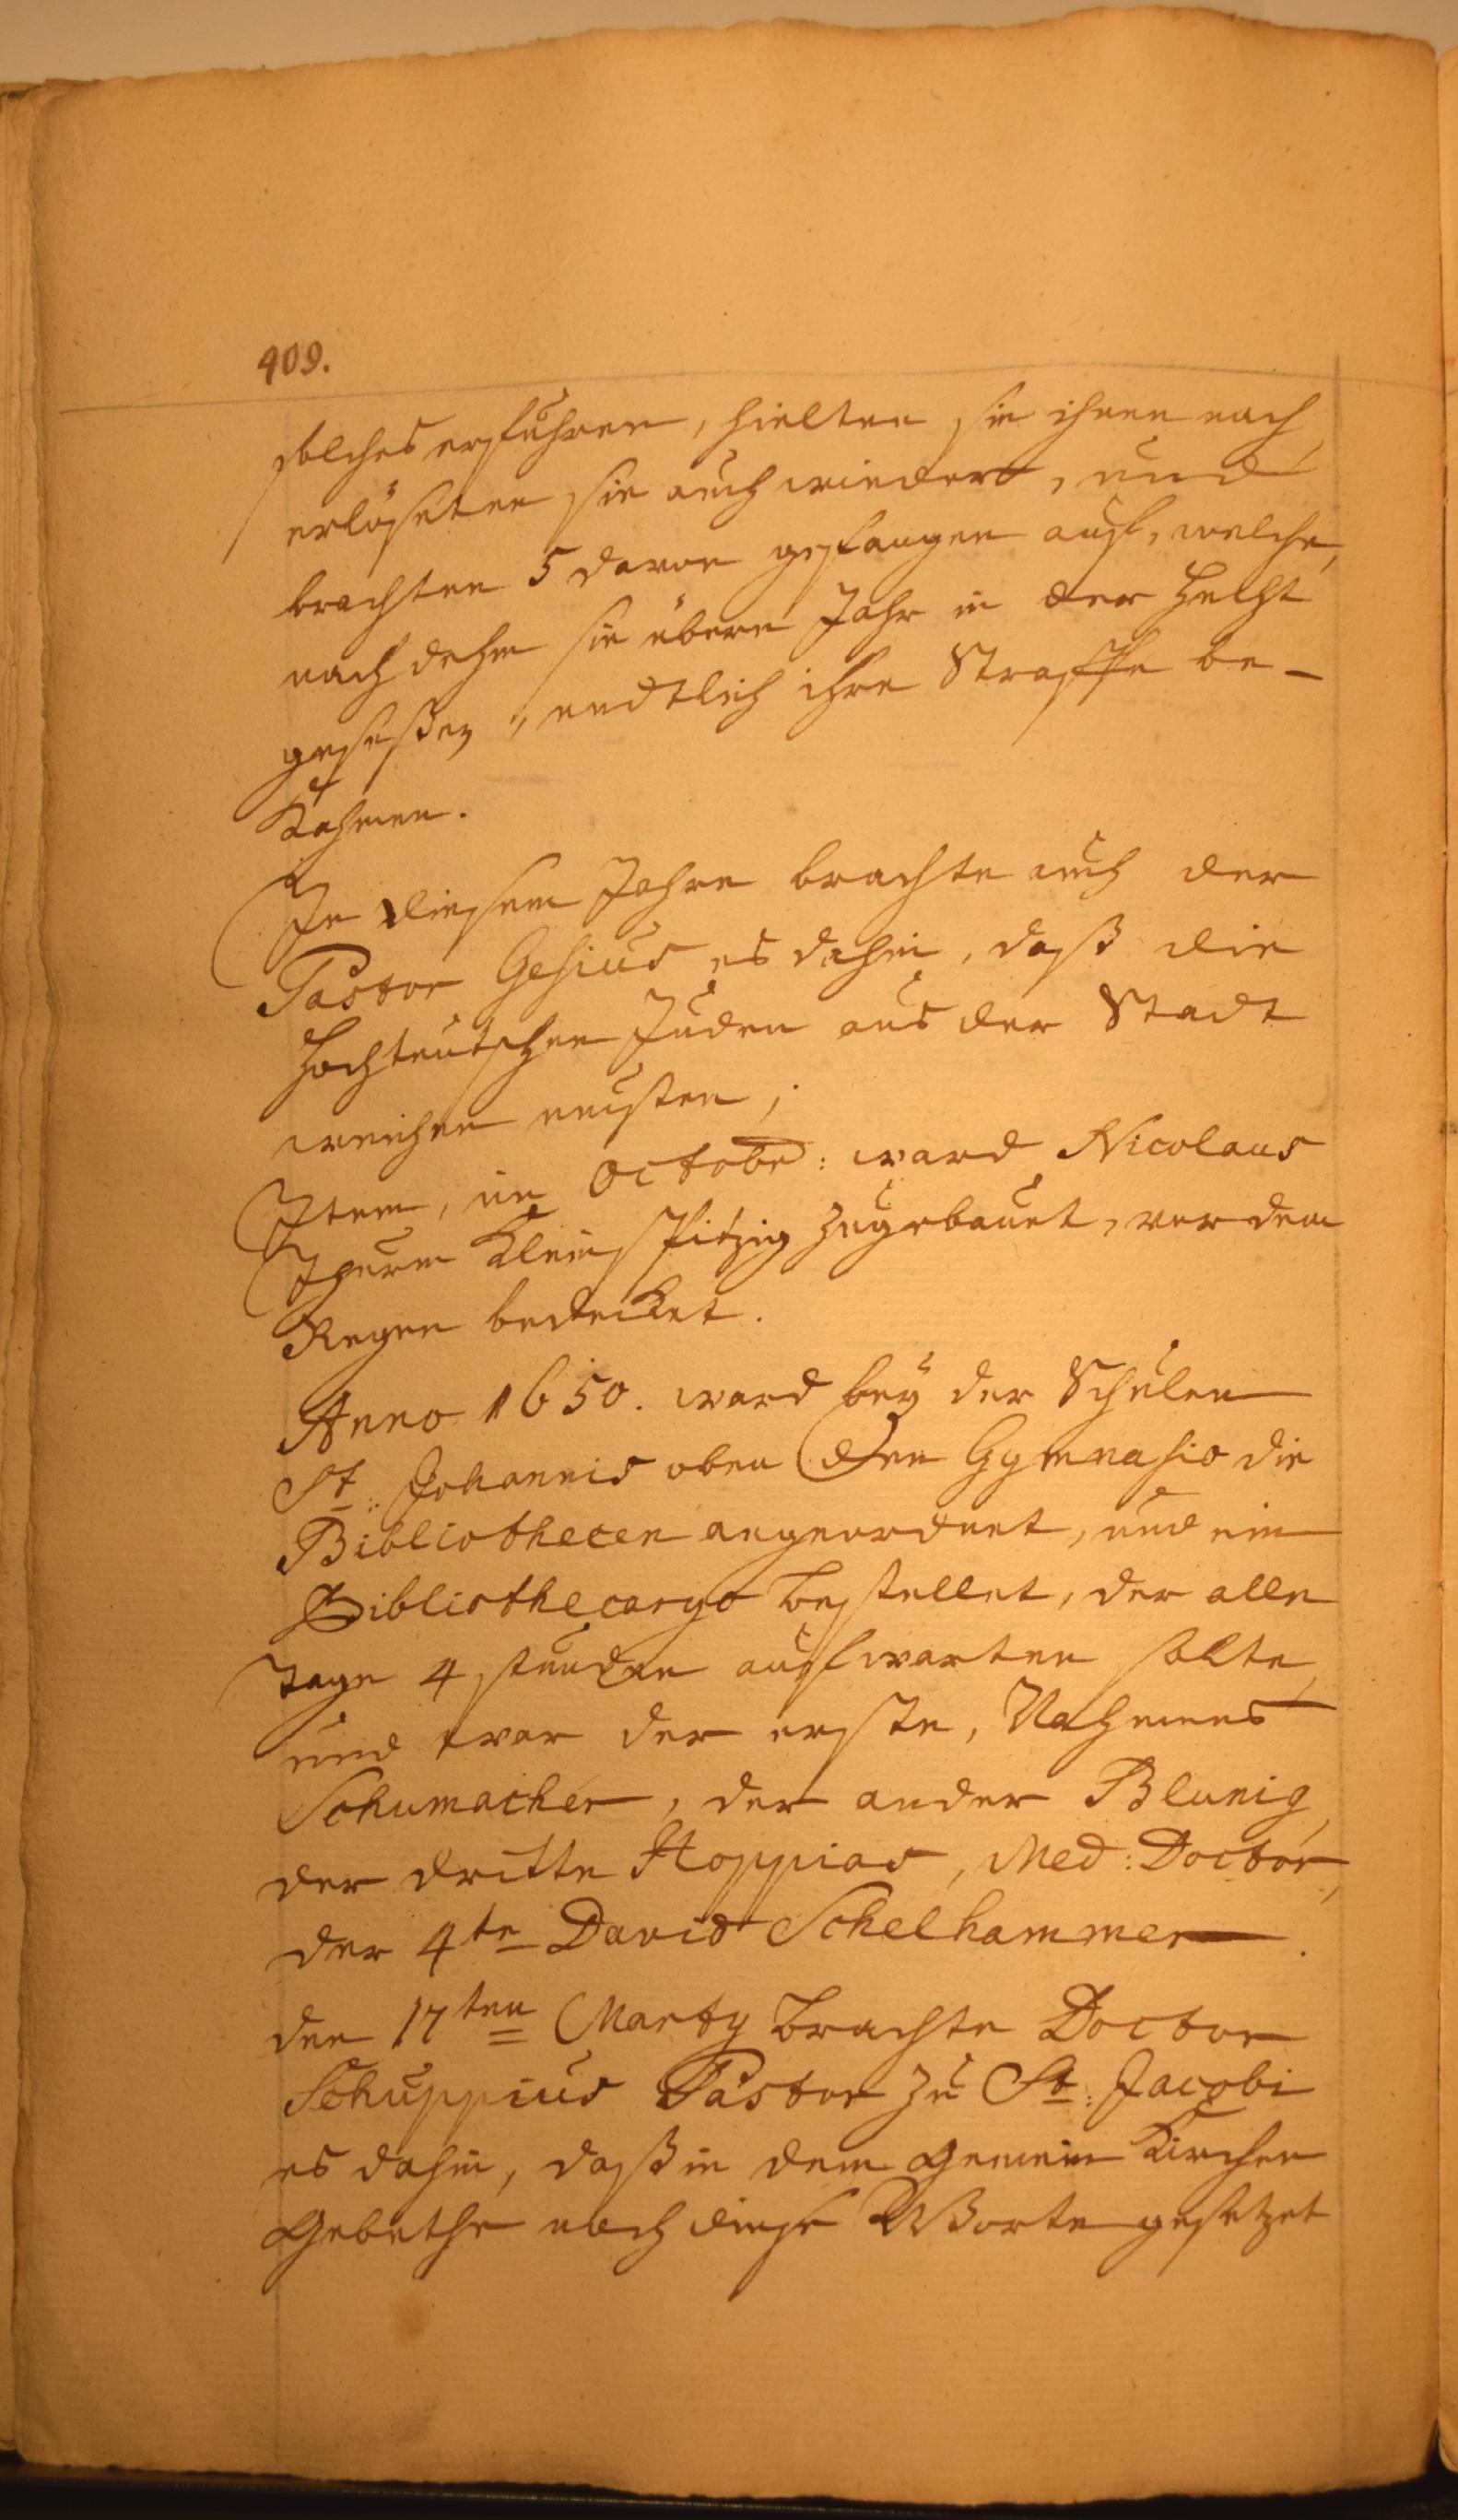 409.
solches erfuhren, hielten sie ihnen nach,
erlöseten sie auch wieder, und
brachten 5 davon gefangen auf, welche,
nach dehm sie übern Jahr in der Hafft
geseßen, endtlich ihre Straffe be-
kahmen.
In diesem Jahre brachte auch der
Pastor Gesius es dahin, daß die
Hochteutschen Juden aus der Stadt
weichen musten,
Item, im Octobr: ward Nicolaus
Thurm klein spitzig zugebauet, vor dem
Regen bedecket.
Anno 1650. ward bey der Schulen
St: Johannis oben den Gymnasio die
Bibliothecen angeordnet, und ein
Bibliothecaryo bestellet, der alle
Tage 4 stunden aufwarten solte,
und war der erste, Nahmens
Schumacher, der ander Blumig,
der dritte Hoppius, Med: Doctor,
der 4te David Schelhammer.
den 17ten Marty brachte Doctor
Schuppius Pastor zu St: Jacobi
es dahin, daß in dem Gemein Kirchen
Gebethe noch diese Worte gesetzet